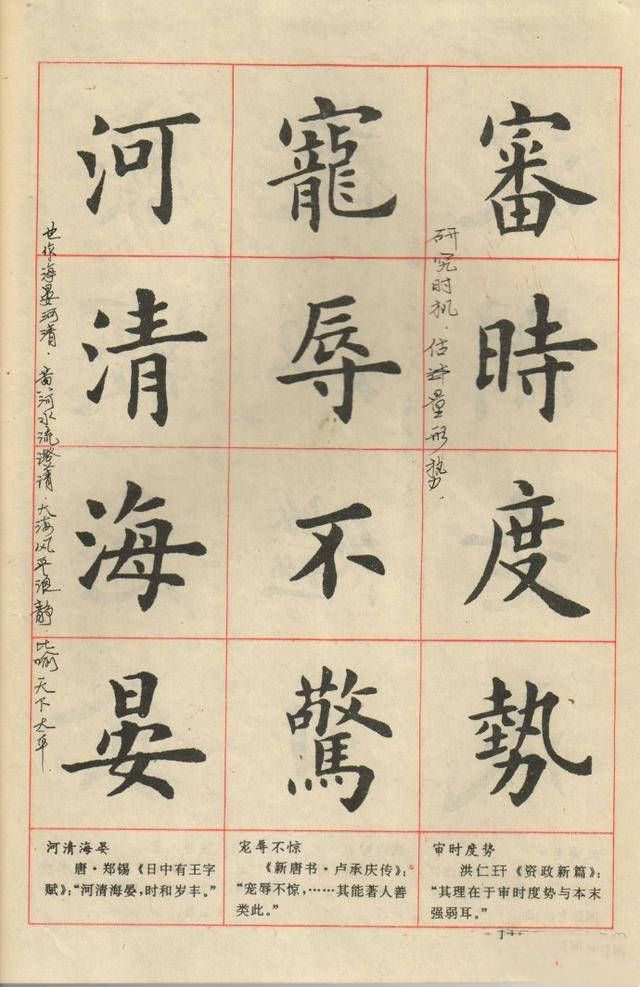 審時度勢
寵辱不驚
河清海晏
研究时机．估计量形势．
也作海晏河清．黄河水流澄清．大海风平浪静．比喻天下太平．
河清海晏
唐·郑锡《日中有王字
赋》：“河清海晏，时和岁丰。”
宠辱不惊
《新唐书·卢承庆传》：
“宠辱不惊，……其能著人善
类此。”
审时度势
洪仁玕《资政新篇》：
“其理在于审时度势与本末
强弱耳。”